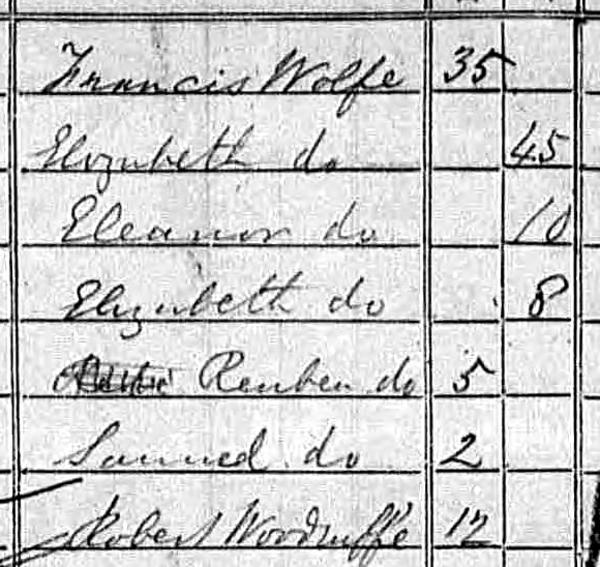 Francis Wolfe 35
Elizabeth do 45
Eleanor do 10
Elizabeth do 8
Reuben do 5
Samuel do 2
Robert Woodruffe 12